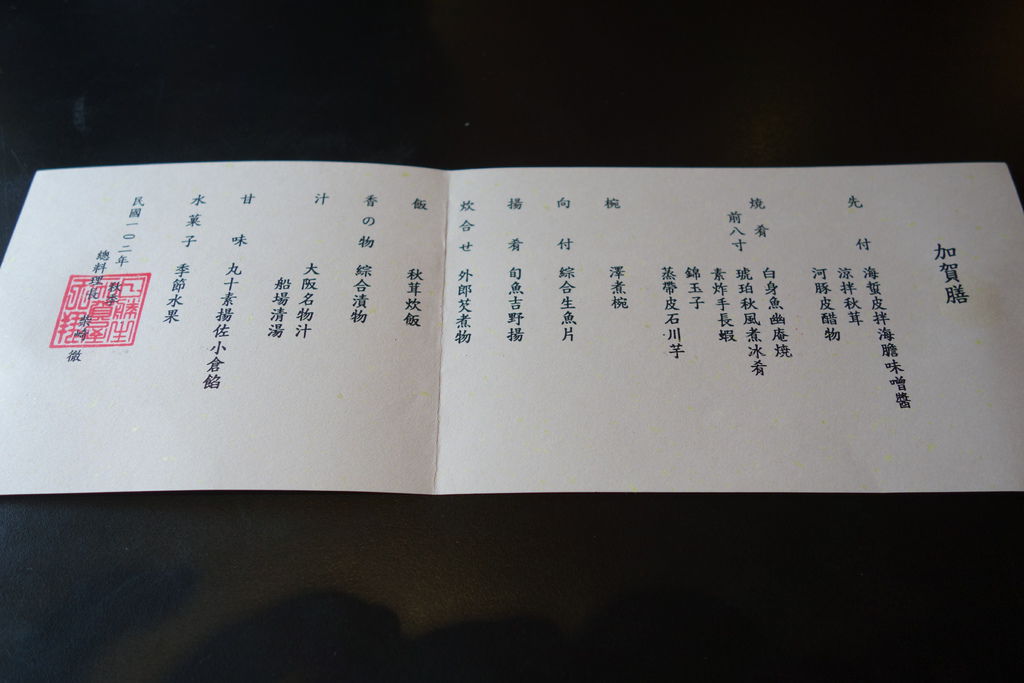 加賀膳
先付
海蜇皮拌海膽味噌醬
涼拌秋茸
河豚皮醋物
燒肴
前八寸
白身魚幽庵燒
琥珀秋風煮冰肴
素炸手長蝦
錦玉子
蒸帶皮石川芋
椀
澤煮椀
向付
綜合生魚片
揚肴
旬魚吉野揚
炊合せ
外郎芡煮物
飯
秋茸炊飯
香の物
綜合漬物
汁
大阪名物汁
船場清湯
甘味
丸十素揚佐小倉餡
水菓子
季節水果
民國一〇二年
秋季
總料理長
柴崎 徹